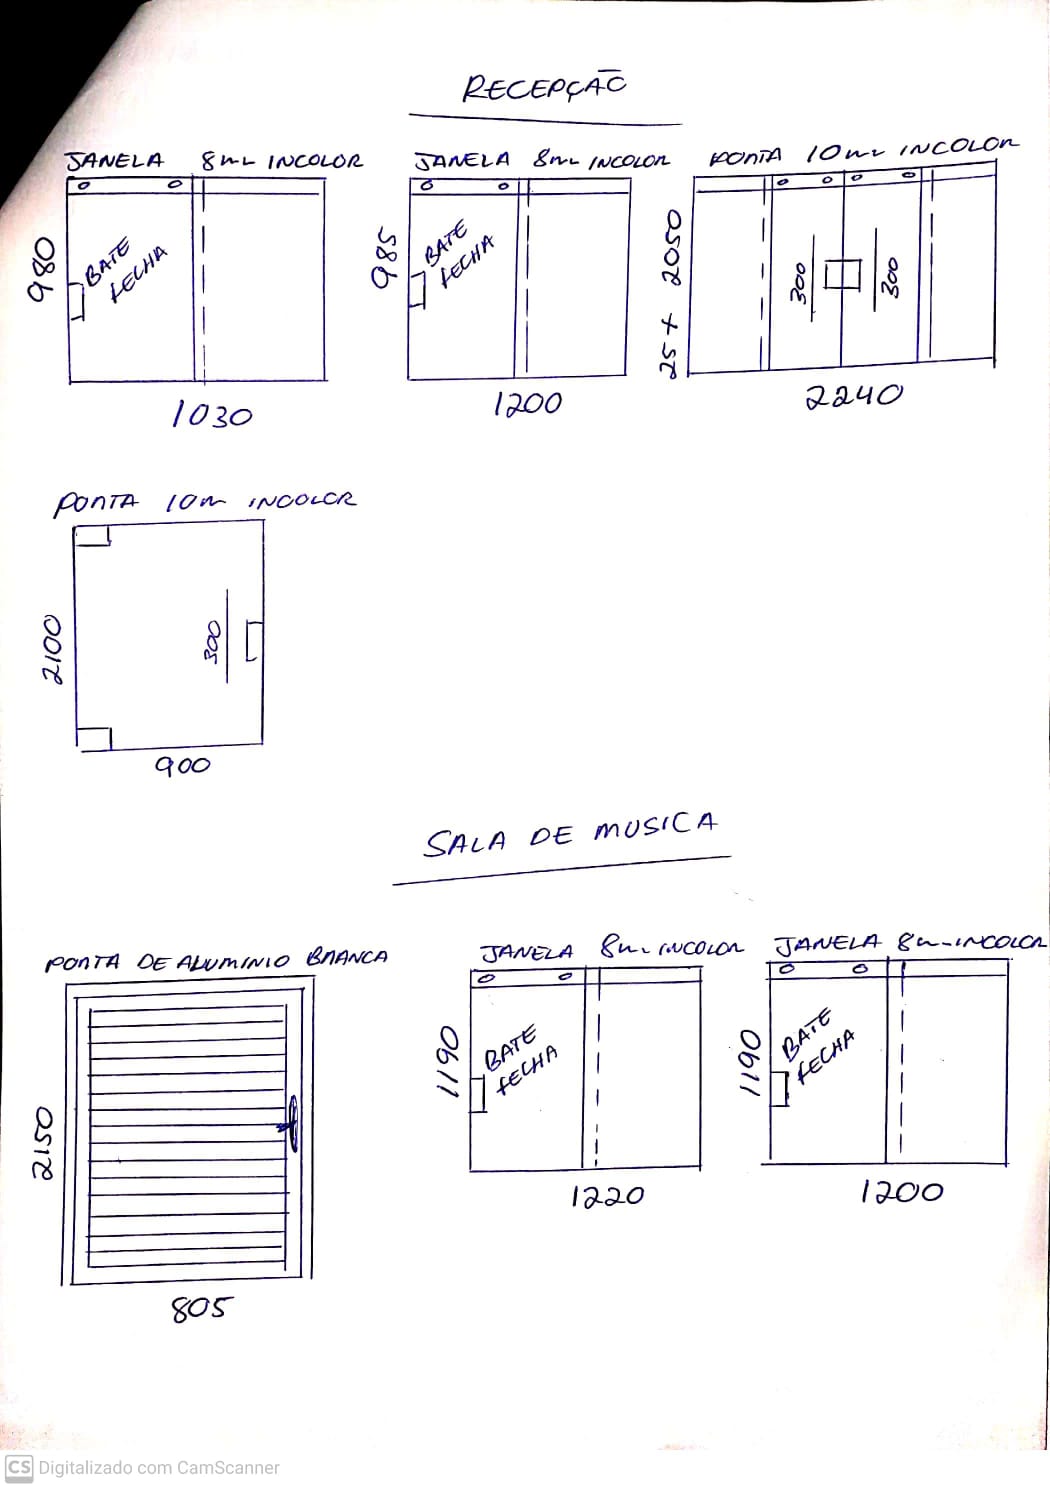 RECEPÇÃO
JANELA 8mm INCOLOR
980
BATE
FECHA
1030
JANELA 8mm INCOLOR
985
BATE
FECHA
1200
PORTA 10mm INCOLOR
25 + 2050
300
300
2240
PORTA 10m INCOLOR
2100
300
900
SALA DE MUSICA
PORTA DE ALUMINIO BRANCA
2150
805
JANELA 8m INCOLOR
1190
BATE
FECHA
1220
JANELA 8m INCOLOR
1190
BATE
FECHA
1200
CS Digitalizado com CamScanner